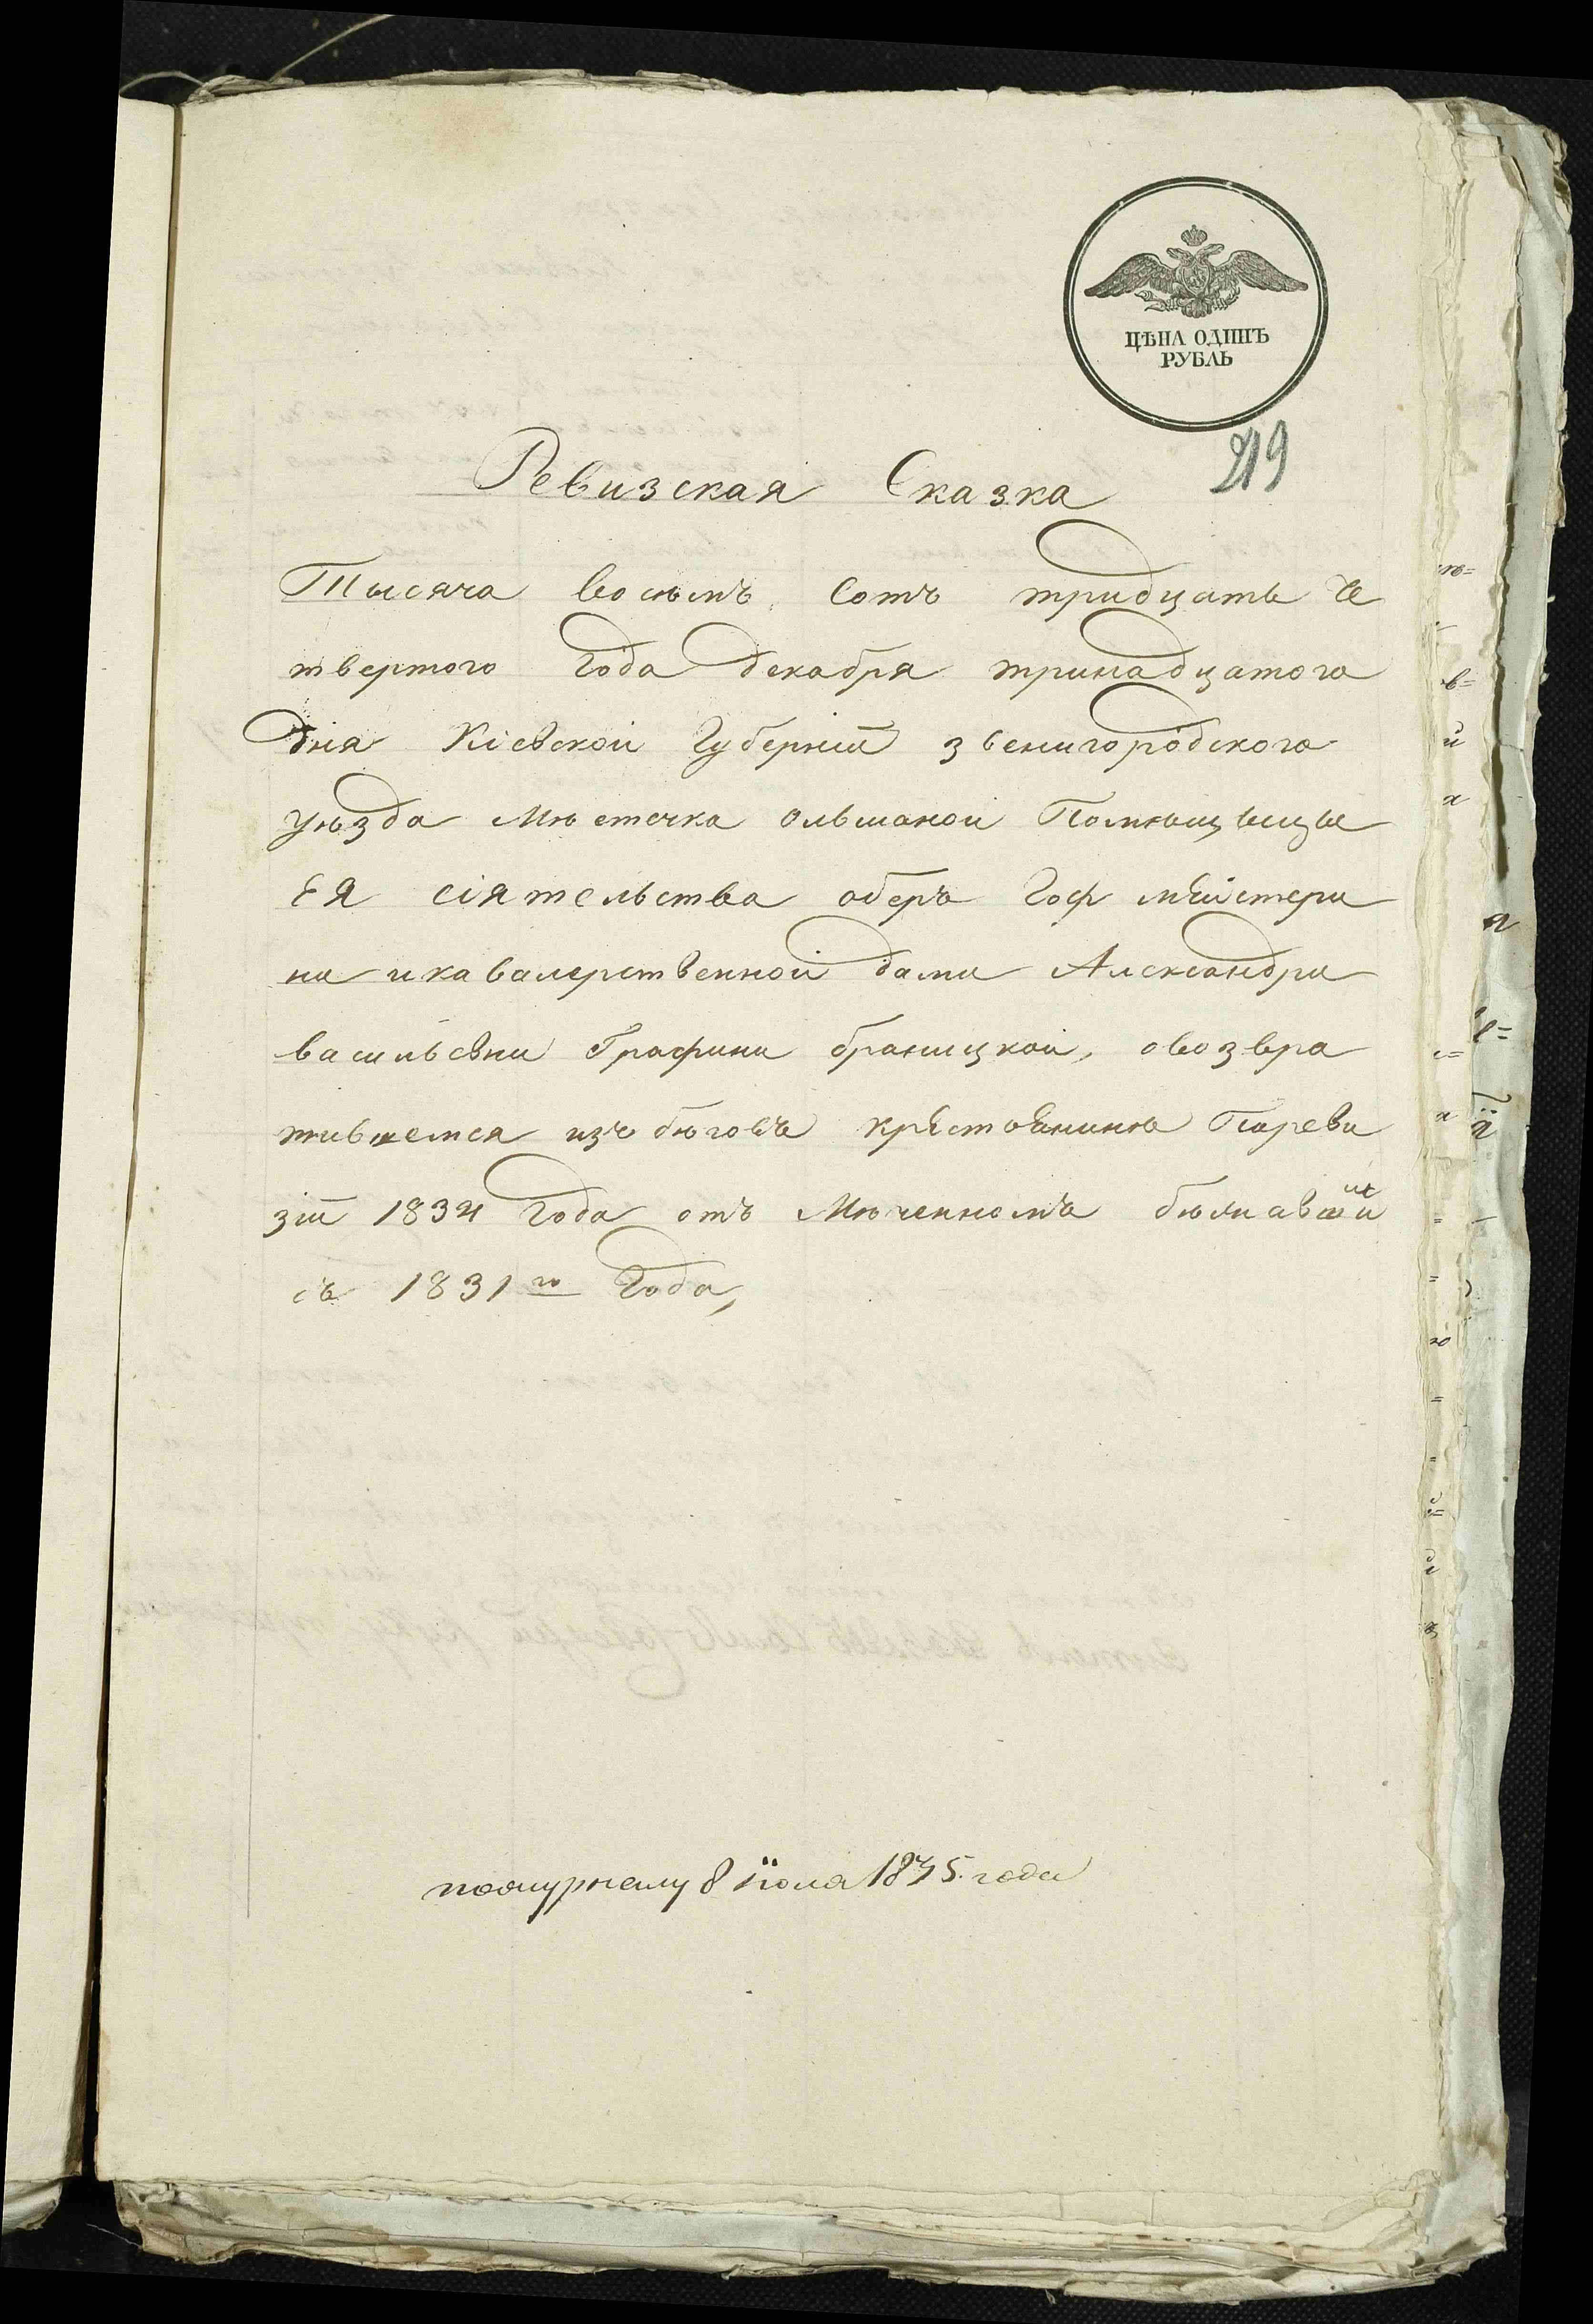 ЦѢНА ОДИНЪ
РУБЛЬ
219
Ревизская Сказка
Тысяча восѣмъ Сотъ тридцать че
твертого Года декабря тринадцатого
дня Кіевской Губерніи звенигородского
уѣзда Мѣстечка Ольшаной Помѣщыцы
Ея сіятельства оберъ Гоф мейстери
ни и кавалерственной дами Александри
васильевни Графини браницкой, о возвра
тившемся изъ бѣговъ крестьянинѣ По реви
зіи 1834 Года отъ Мѣченномъ
съ 1831го Года,
8 іюля 1835 года